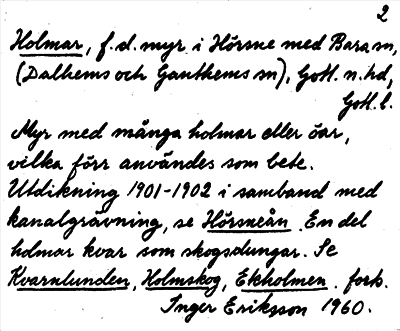 2
Holmar, f.d. myr i Hörsne med Bara sn,
(Dalhems och Ganthems sn), Gotl. n. hd,
Gotl. l.
Myr med många holmar eller öar,
vilka förr användes som bete.
Utdikning 1901-1902 i samband med
kanalgrävning, se Hörsneån. En del
holmar kvar som skogsdungar. Se
Kvarnlunden, Holmskog, Ekholmen. forts.
Inger Eriksson 1960.